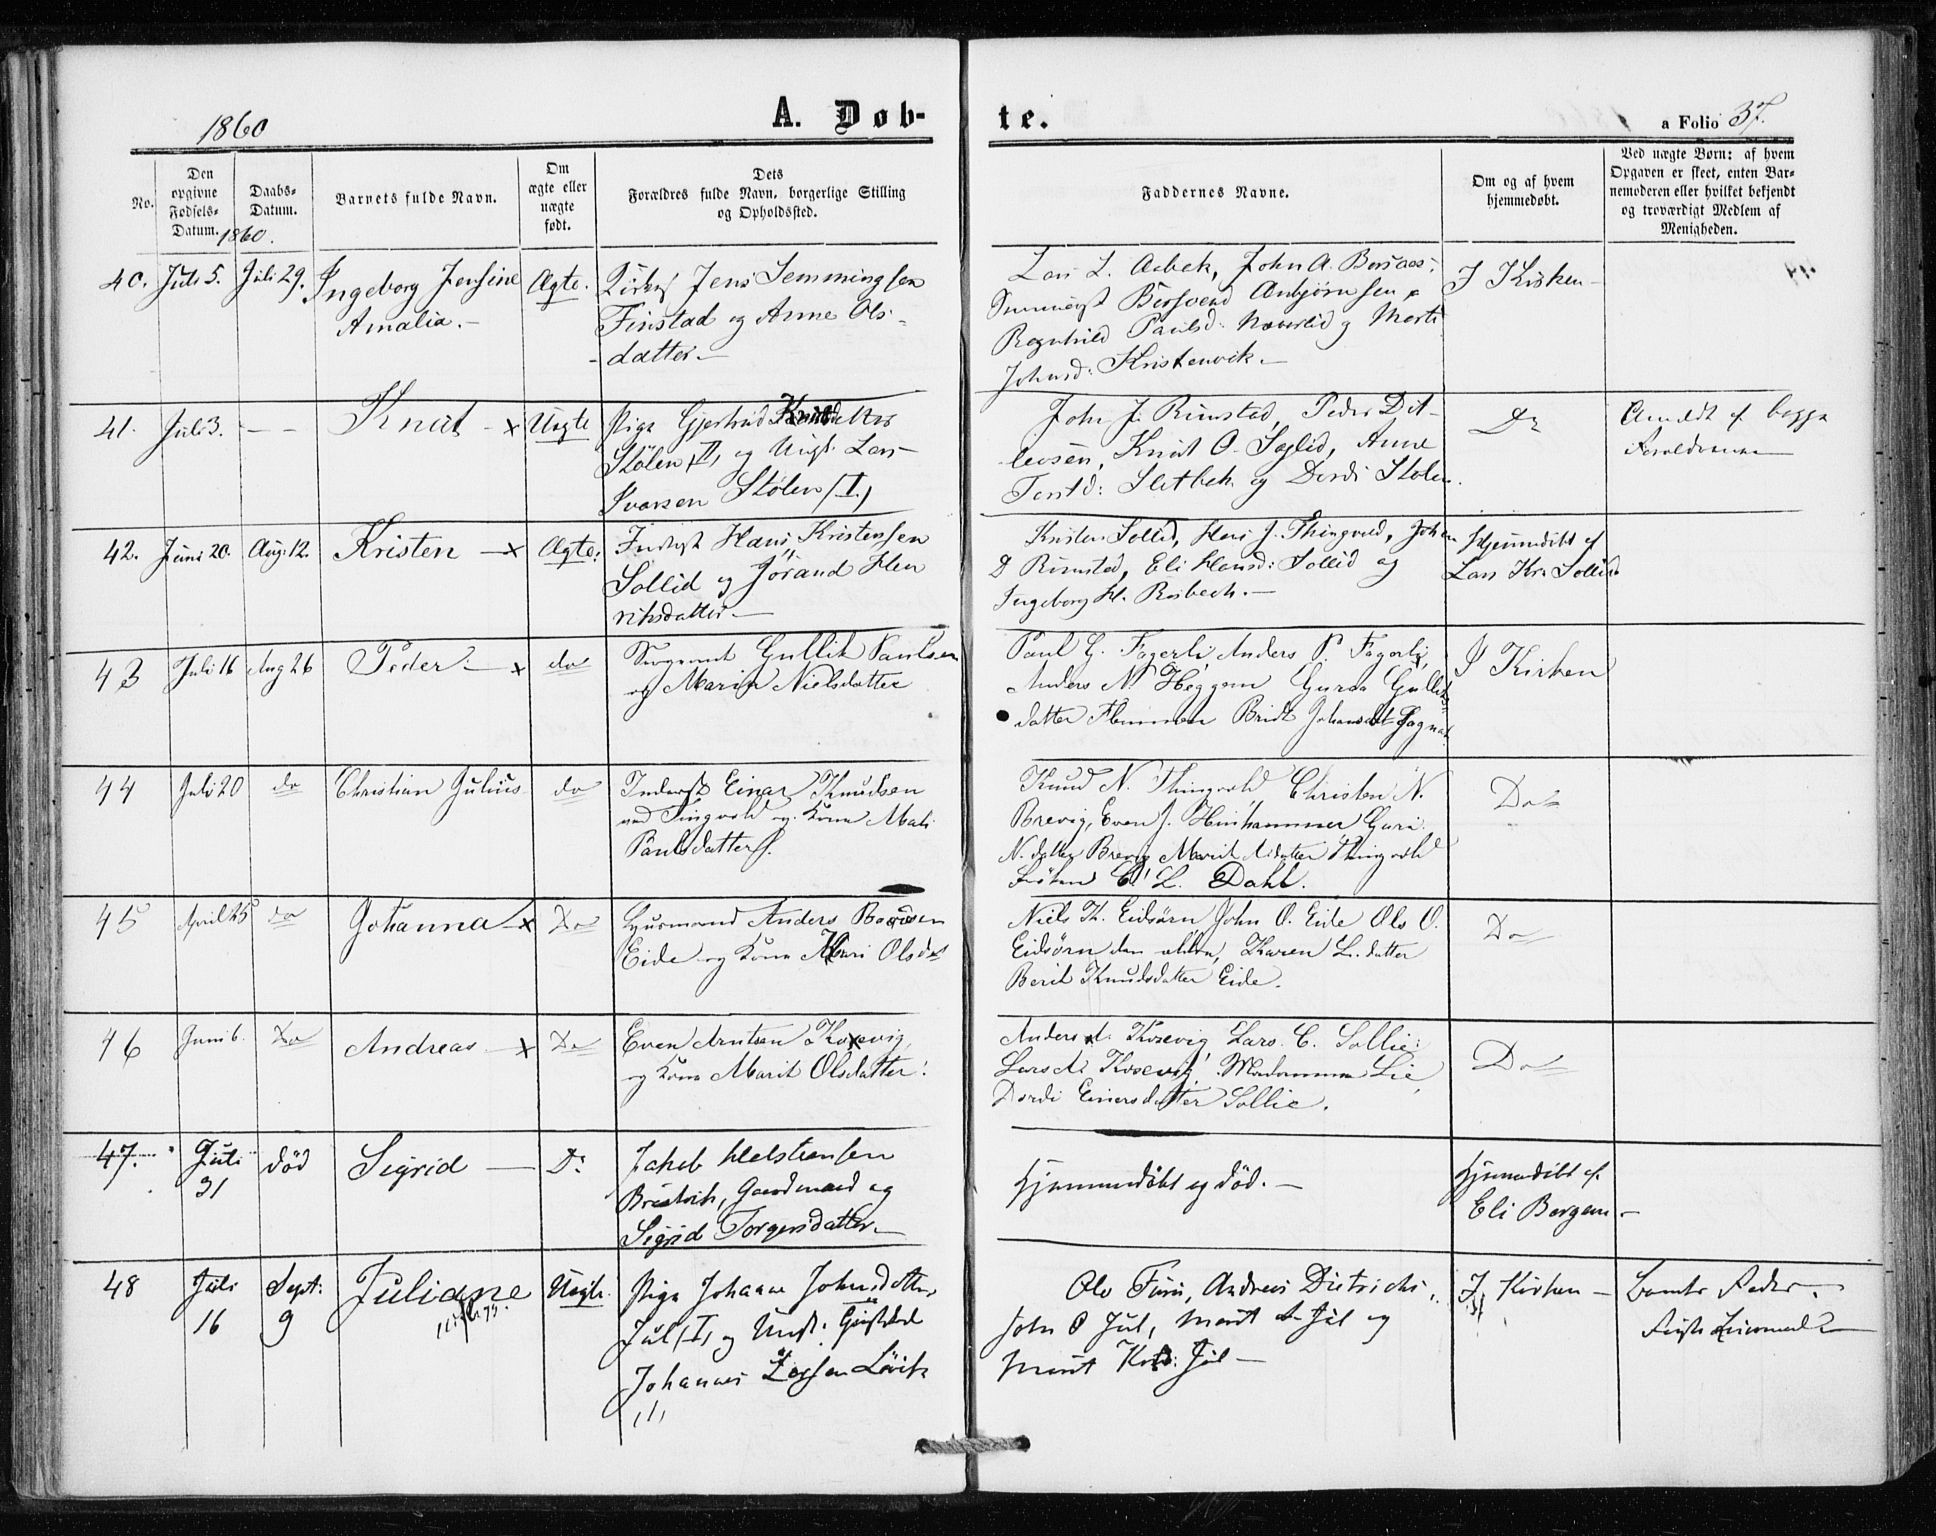 1860
A. Døb-
te.
a Folio 37.
No.
Den
opgivne
Fødsels-
Datum.
1860.
Daabs-
Datum.
Barnets fulde Navn.
Om
ægte eller
uægte
født.
Dets
Forældres fulde Navn, borgerlige Stilling
og Opholdssted.
Faddernes Navne.
Om og af hvem
hjemmedøbt.
Ved uægte Børn: af hvem
Opgaven er skeet, enten Bar-
nemoderen eller hvilket bekjendt
og troværdigt Medlem af
Menigheden.
40. Juli 5. Juli 29. Ingeborg Jensine
Amalia.
Ægte.
Jens Semmingsen
Finstad og Anne Ols-
datter
Lars L. Aabek, John A.
Bersvend Anbjørnsen
Ragnhild Paulsd: og Marit
Johnsd: Kristenvik
I Kirken
41. Juli 3. - - Knut x Uægte
Pige Gjertrud Knutsdatter
Stølen (I) og Ungk. Lars
Ivarsen Stølen (I.)
John J. Rimstad, Peder Dit-
levsen, Knut O. Soglid, Anne
Slitbek og Dordi Stølen.
Do
Anmeldt af begge
Forældrene
42. Juni 20. Aug: 12. Kristen x Ægte:
Inderst Hans Kristensen
Sollid og Jorand Hen
riksdatter
Kristen Sollid, Hans J. Thingvold, Johan
D Rimstad, Eli Hansd: Sollid og
Ingeborg H. Rosbech.
Hjemmedøbt af
Lars Kr. Sollid
43 Juli 16 Aug 26 Peder x do
Sergeant Gullik Paulsen
og Marie Nielsdatter
Paul G. Fagerli Anders P. Fagerli,
Anders N. Heggem Guroa Gulliks
datter Flemmen Brit Johansdt
I Kirken
44 Juli 20 do Christian Julius do
Inderst Einar Knudsen
ved Tingvold og Kone Mali
Paulsdatter.
Knud N. Thingvold Christen N.
Brevig, Even J. Hinhammer Guri
N. datter Brevig Marit datter Thingvold
Frøken E. L. Dahl.
Do
45 April 25 do Johanna x Do
Huusmand Anders
Eide og Kone Mari Olsdt
Niels K. Eidsørn John O. Eide Ole O.
Eidsørn den ældre, Karen L. datter
Berit Knudsdatter Eide.
Do
46 Juni 6. Do Andreas x Do
Even Arntsen Korsvig,
og Kone Marit Olsdatter.
Anders A. Korsvig Lars C. Sollie
Lars Korsvig, Madamme Lie,
Dordi Einersdatter Sollie.
Do
47. Juli
31
død Sigrid Do
Jakob Halstensen
Gaardmand og
Sigrid Torgersdatter
Hjemmedøbt og død.
Hjemmedøbt af
Eli Bergem
48 Juli
16
Sept:
9
Juliane Uægte
Pige Johanne Johnsdatter,
Jul (I) og
Johannes Larsen
Ole Furu, Andreas Dietrichs.,
John O Jul, Marit Jul og
Marit Jul
I Kirken
Barnets Fader